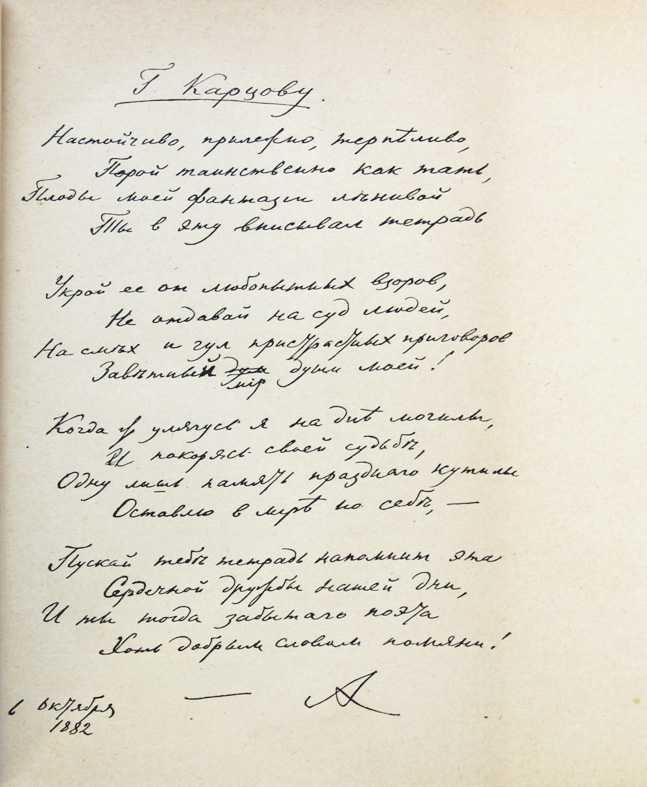 Г Карцову.
Настойчиво, прилежно, терпѣливо,
Порой таинственно как тать,
Плоды моей фантазии лѣнивой
Ты в эту вписывал тетрадь
Укрой ее от любопытных взоров,
Не отдавай на суд людей,
На смѣх и гул пристрастных приговоров
Завѣтный дум души моей!
мiр
Когда ж улягусь я на днѣ могилы,
И покорясь своей судьбѣ,
Одну лишь память празднаго кутилы
Оставлю в мiрѣ по себѣ, —
Пускай тебѣ тетрадь напомнит эта
Сердечной дружбы нашей дни,
И ты тогда забытаго поэта
Хоть добрым словом помяни!
— А
6 Октября
1882